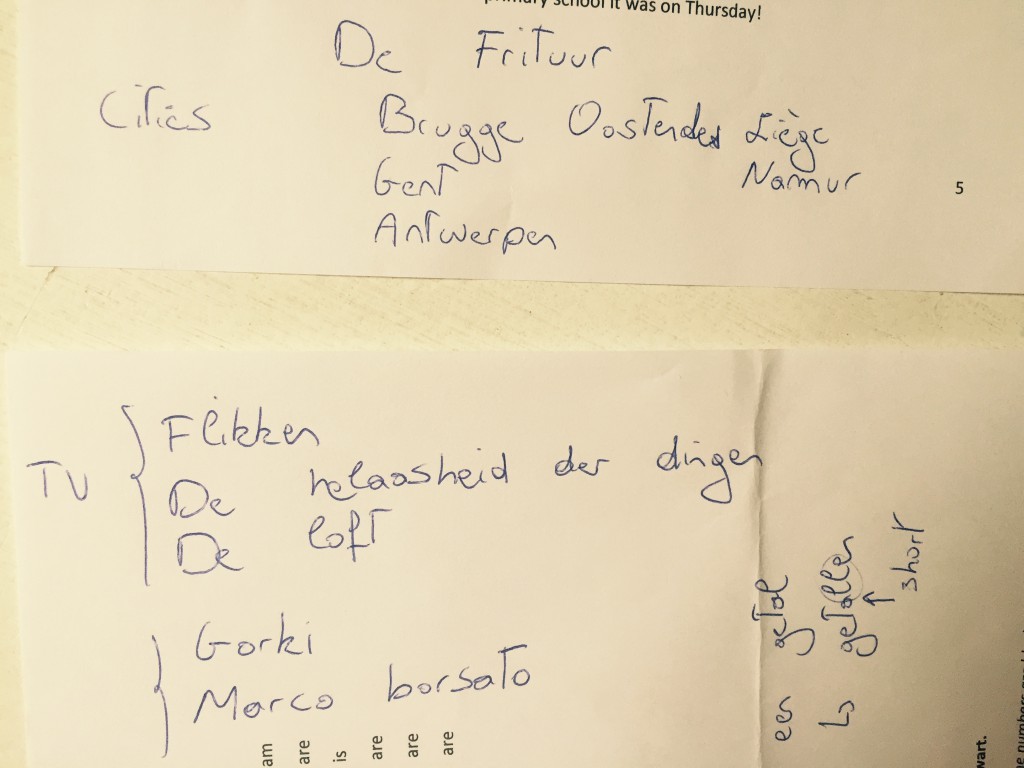 primary school it was on Thursday!
De Frituur
Cities Brugge Oostende Liège
Gent Namur
Antwerpen
5
TV
Flikken
De helaasheid der dingen
De loft
Gorki
Marco borsato
een getal
↳ getallen
↑
short
am
are
is
are
are
are
wart.
numbers